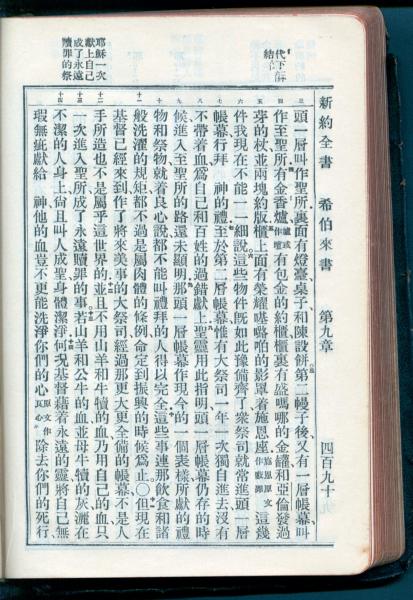 新約全書 希伯來書 第九章 四百九十
頭一層叫作聖所、裏面有燈臺桌子和陳設餅、第二幔子後又有一層帳幕叫
作至聖所、有金香爐、爐或作壇有包金的約櫃、櫃裏有盛嗎哪的金罐和亞倫發過
芽的杖、並兩塊約版、櫃上面有榮耀𠼖𡀔啪的影罩着施恩座、施恩原文作蔽罪這幾
件我現在不能一一細說、這些物件旣如此豫備齊了、衆祭司就常進頭一層
帳幕行拜 神的禮、至於第二層帳幕、惟有大祭司一年一次獨自進去、沒有
不帶着血、爲自己和百姓的過錯獻上、聖靈用此指明頭一層帳幕仍存的時
候、進入至聖所的路還未顯明、那頭一層帳幕作現今的一個表樣、所獻的禮
物和祭物、就着良心說、都不能叫禮拜的人得以完全、這些事連那飮食和諸
般洗濯的規矩、都不過是屬肉體的條例、命定到振興的時候爲止、○但現在
基督已經來到、作了將來美事的大祭司、經過那更大更全備的帳幕、不是人
手所造也不是屬乎這世界的、並且不用山羊和牛犢的血、乃用自己的血、只
一次進入聖所、成了永遠贖罪的事、若山羊和公牛的血、並母牛犢的灰、灑在
不潔的人身上、尙且叫人成聖身體潔淨、何況基督藉着永遠的靈、將自己無
瑕無疵獻給 神、他的血豈不更能洗淨你們的心、原文作良心除去你們的死行、
三
四
五
六
七
八
九
十
十一
十二
十三
十四
耶穌一次
獻上自己
成了永遠
贖罪的祭